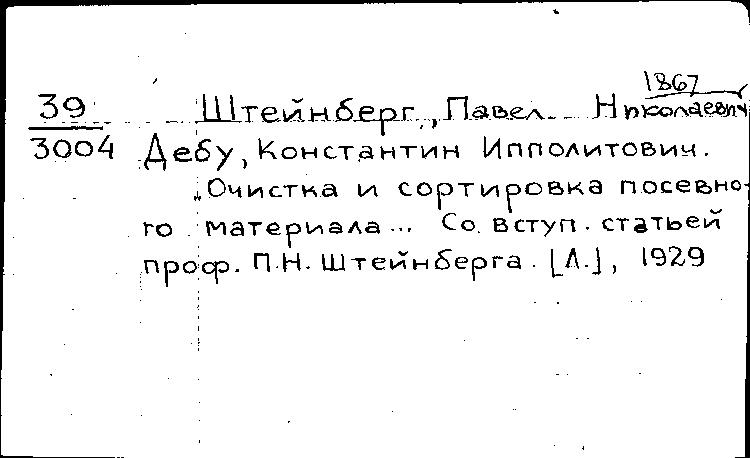 1867
39 Штейнберг, Павел Николаевич
3004 Дебу, Константин Ипполитович.
Очистка и сортировка посевно-
го материала... Со вступ. статьей
проф. П.Н. Штейнберга. [Л.], 1929